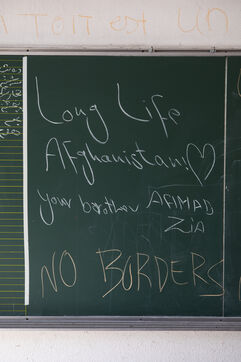 toit est un
Long Life
Afghanistan! ♡
your barother AHMAD
Zia
NO BORDERS